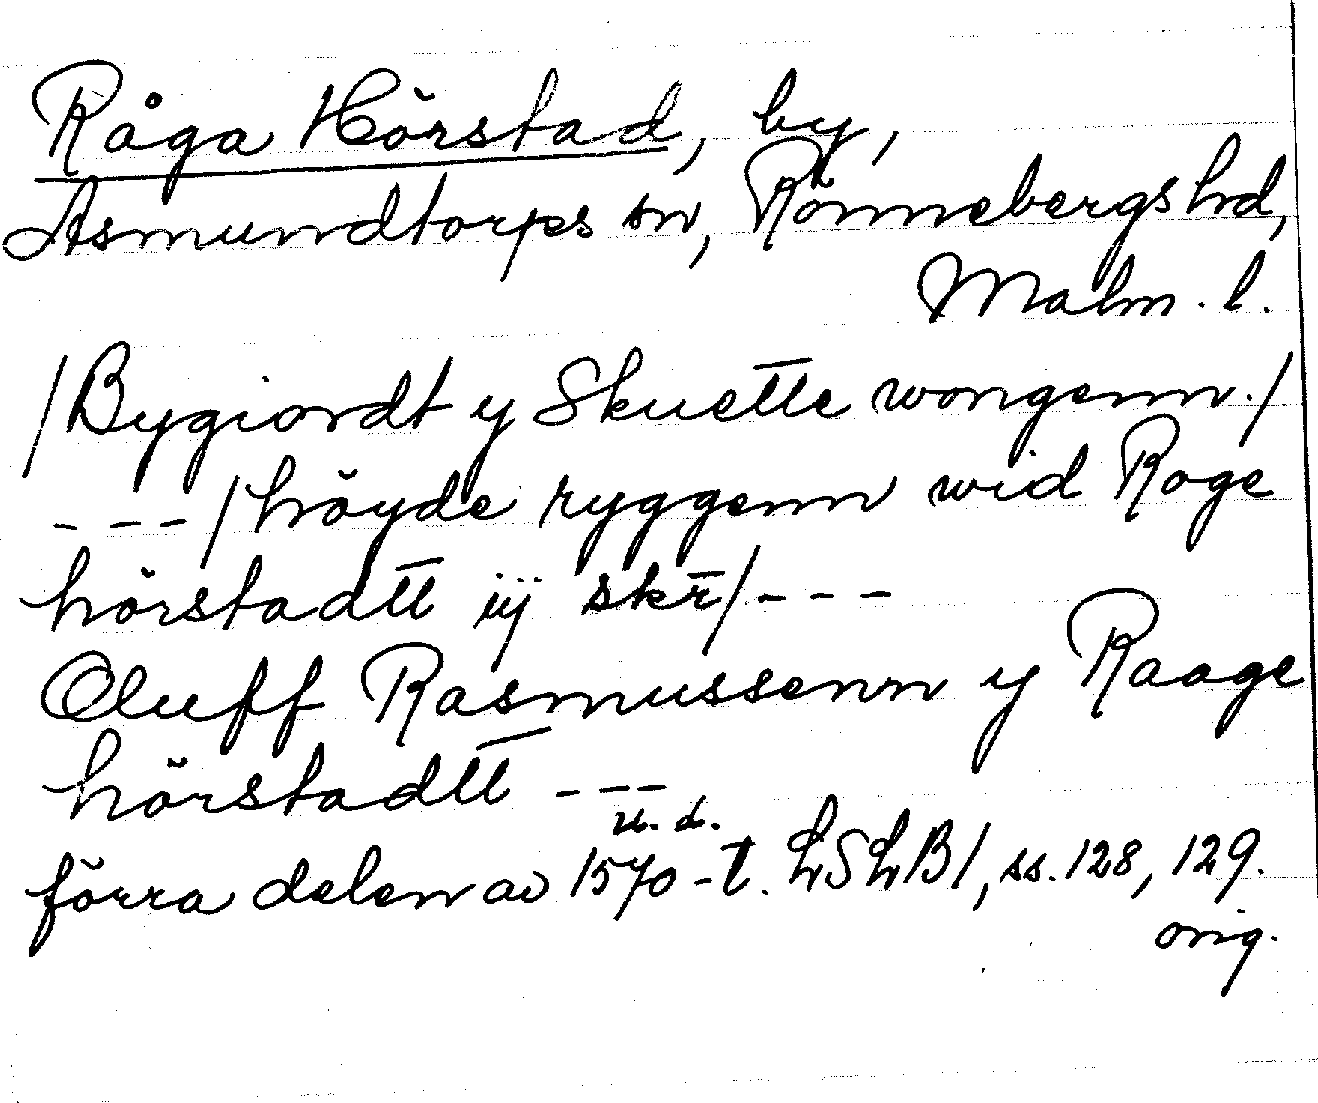 Råga Hörstad, by,
Asmundtorps sn, Rönnebergs hd,
Malm. l.
/Bygiordt y Skuette wongenn./
---/höyde ryggenn wid Roge
hörstadtt iij skr̄/---
Oluff Rasmussenn y Raage
hörstadtt ---
u. d.
förra delen av 1570-t. LSLB1, ss. 128, 129.
orig.